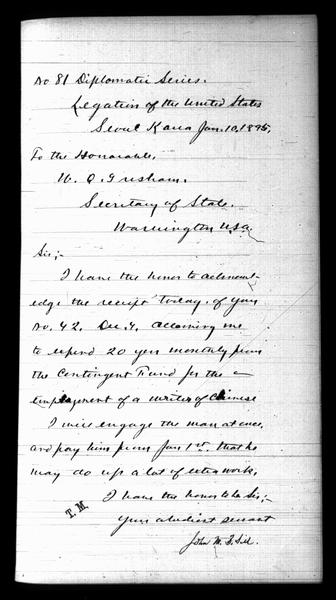 No 81 Diplomatic Series.
Legation of the United States
Seoul Korea Jan. 10, 1895,
To the Honorable,
W. Q. Gresham.
Secretary of State.
Washington U.S.A.
Sir;-
I have the honor to acknowl-
edge the receipt today, of your
No. 42, Dec. 4, allowing me
to expend 20 yen monthly from
the Contingent Fund for the
employment of a writer of Chinese
I will engage the man at once,
and pay him from Jan 1st, that he
may do up a lot of extra work,
I have the honor to be Sir;-
T.M.
Your obedient servant
John M. B. Sill